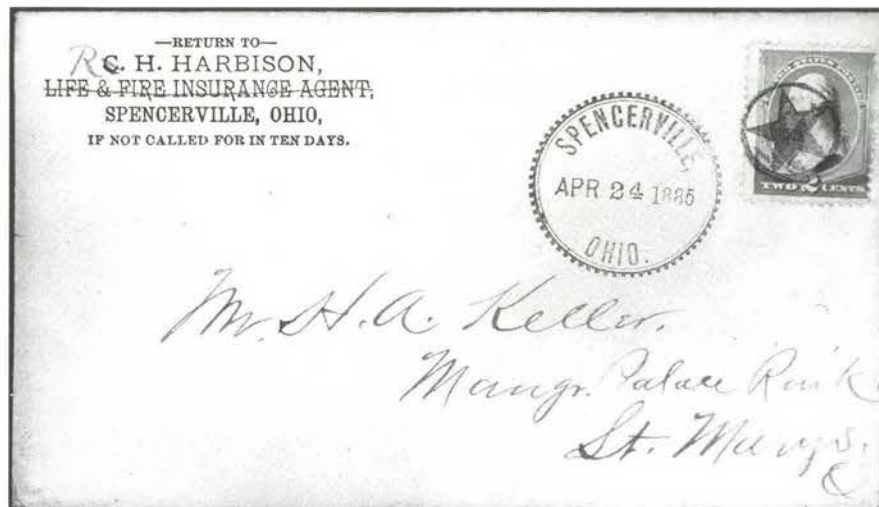 —RETURN TO—
C. H. HARBISON,
LIFE & FIRE INSURANCE AGENT,
SPENCERVILLE, OHIO,
IF NOT CALLED FOR IN TEN DAYS.
SPENCERVILLE,
APR 24 1885
OHIO.
TWO 2 CENTS
Mr. H. A. Keller.
Mangr. Palace Rink
St. Marys.